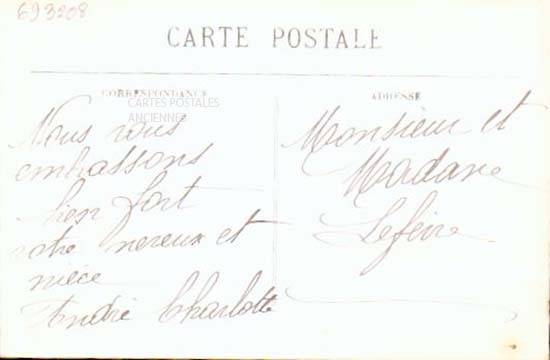 693208
CARTE POSTALE
CORRESPONDANCE
CARTES POSTALES
ANCIENNES
Nous vous
embrassons
bien fort
votre nereux et
nièce
André Charlotte
ADRESSE
Monsieur et
Madame
Lefeivre